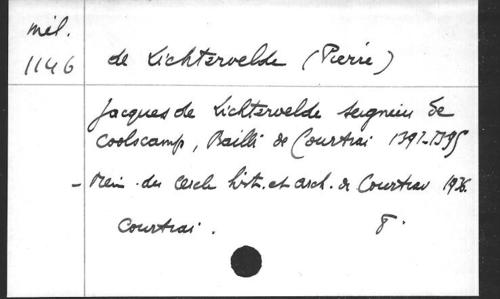 mél.
1146 de Lichtervelde (Pierre)
Jacques de Lichtervelde seigneur de
Coolscamp, Bailli de Courtrai 1391-1395
- Mém. du cercle hist. et arch. de Courtrai 1926.
Courtrai. 8.